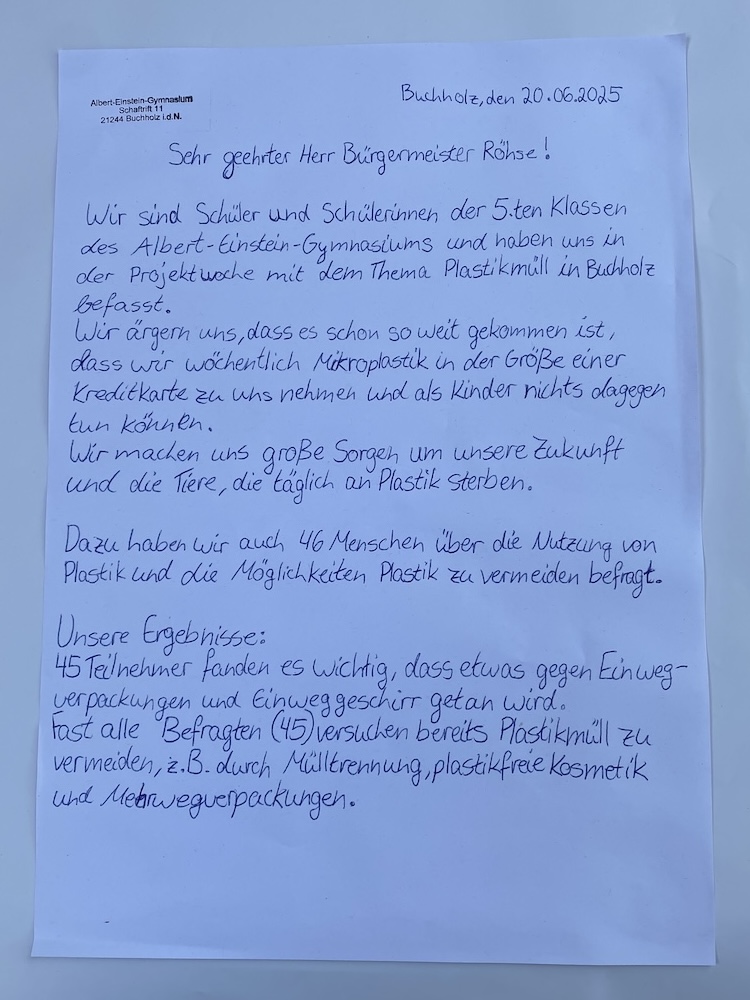 Albert-Einstein-Gymnasium
Schaftrift 11
21244 Buchholz i.d.N.
Buchholz, den 20.06.2025
Sehr geehrter Herr Bürgermeister Röhse!
Wir sind Schüler und Schülerinnen der 5.ten Klassen
des Albert-Einstein-Gymnasiums und haben uns in
der Projektwoche mit dem Thema Plastikmüll in Buchholz
befasst.
Wir ärgern uns, dass es schon so weit gekommen ist,
dass wir wöchentlich Mikroplastik in der Größe einer
Kreditkarte zu uns nehmen und als Kinder nichts dagegen
tun können.
Wir machen uns große Sorgen um unsere Zukunft
und die Tiere, die täglich an Plastik sterben.
Dazu haben wir auch 46 Menschen über die Nutzung von
Plastik und die Möglichkeiten Plastik zu vermeiden befragt.
Unsere Ergebnisse:
45 Teilnehmer fanden es wichtig, dass etwas gegen Einweg-
verpackungen und Einweggeschirr getan wird.
Fast alle Befragten (45) versuchen bereits Plastikmüll zu
vermeiden, z.B. durch Mülltrennung, plastikfreie Kosmetik
und Mehrwegverpackungen.